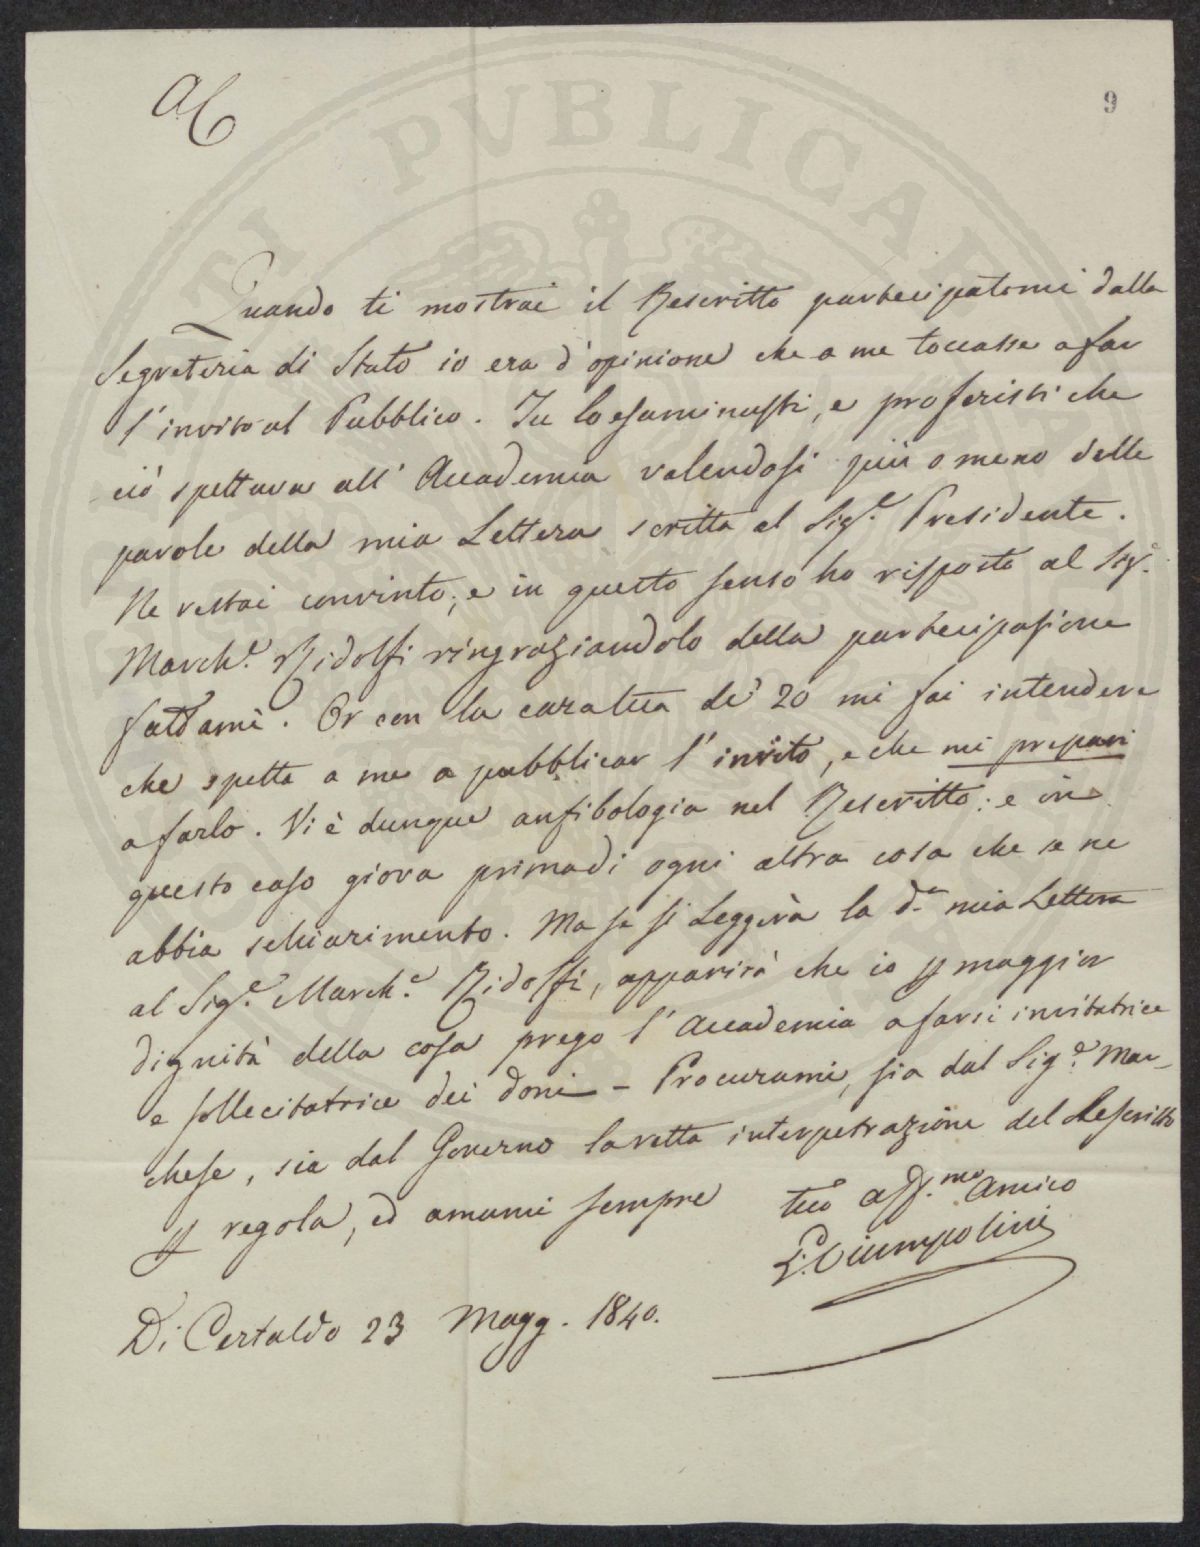 AC
9
Quando ti mostrai il Rescritto partecipatomi dalla
Segreteria di Stato io era d'opinione che a me toccasse a far
l'invito al Pubblico. Tu lo esaminasti, e proferisti che
ciò spettava all'Accademia valendosi più o meno delle
parole della mia Lettera scritta al Sig.e Presidente.
Ne restai convinto; e in questo senso ho risposto al Sig.e
March.e Ridolfi ringraziandolo della partecipazione
fattami. Or con la cara tua de' 20 mi fai intendere
che spetta a me a pubblicar l'invito, e che mi prepari
a farlo. Vi è dunque anfibologia nel Rescritto: e in
questo caso giova prima di ogni altra cosa che se ne
abbia schiarimento. Ma se si leggerà la d.a mia Lettera
al Sig.e March.e Ridolfi, apparirà che io p maggior
dignità della cosa prego l'Accademia a farsi invitatrice
e sollecitatrice dei doni - Procurami, sia dal Sig.e Mar-
chese, sia dal Governo la retta interpetrazione del Rescritto
p regola, ed amami sempre
tuo aff.mo Amico
Di Certaldo 23 Magg. 1840.
TI PVBLICAE